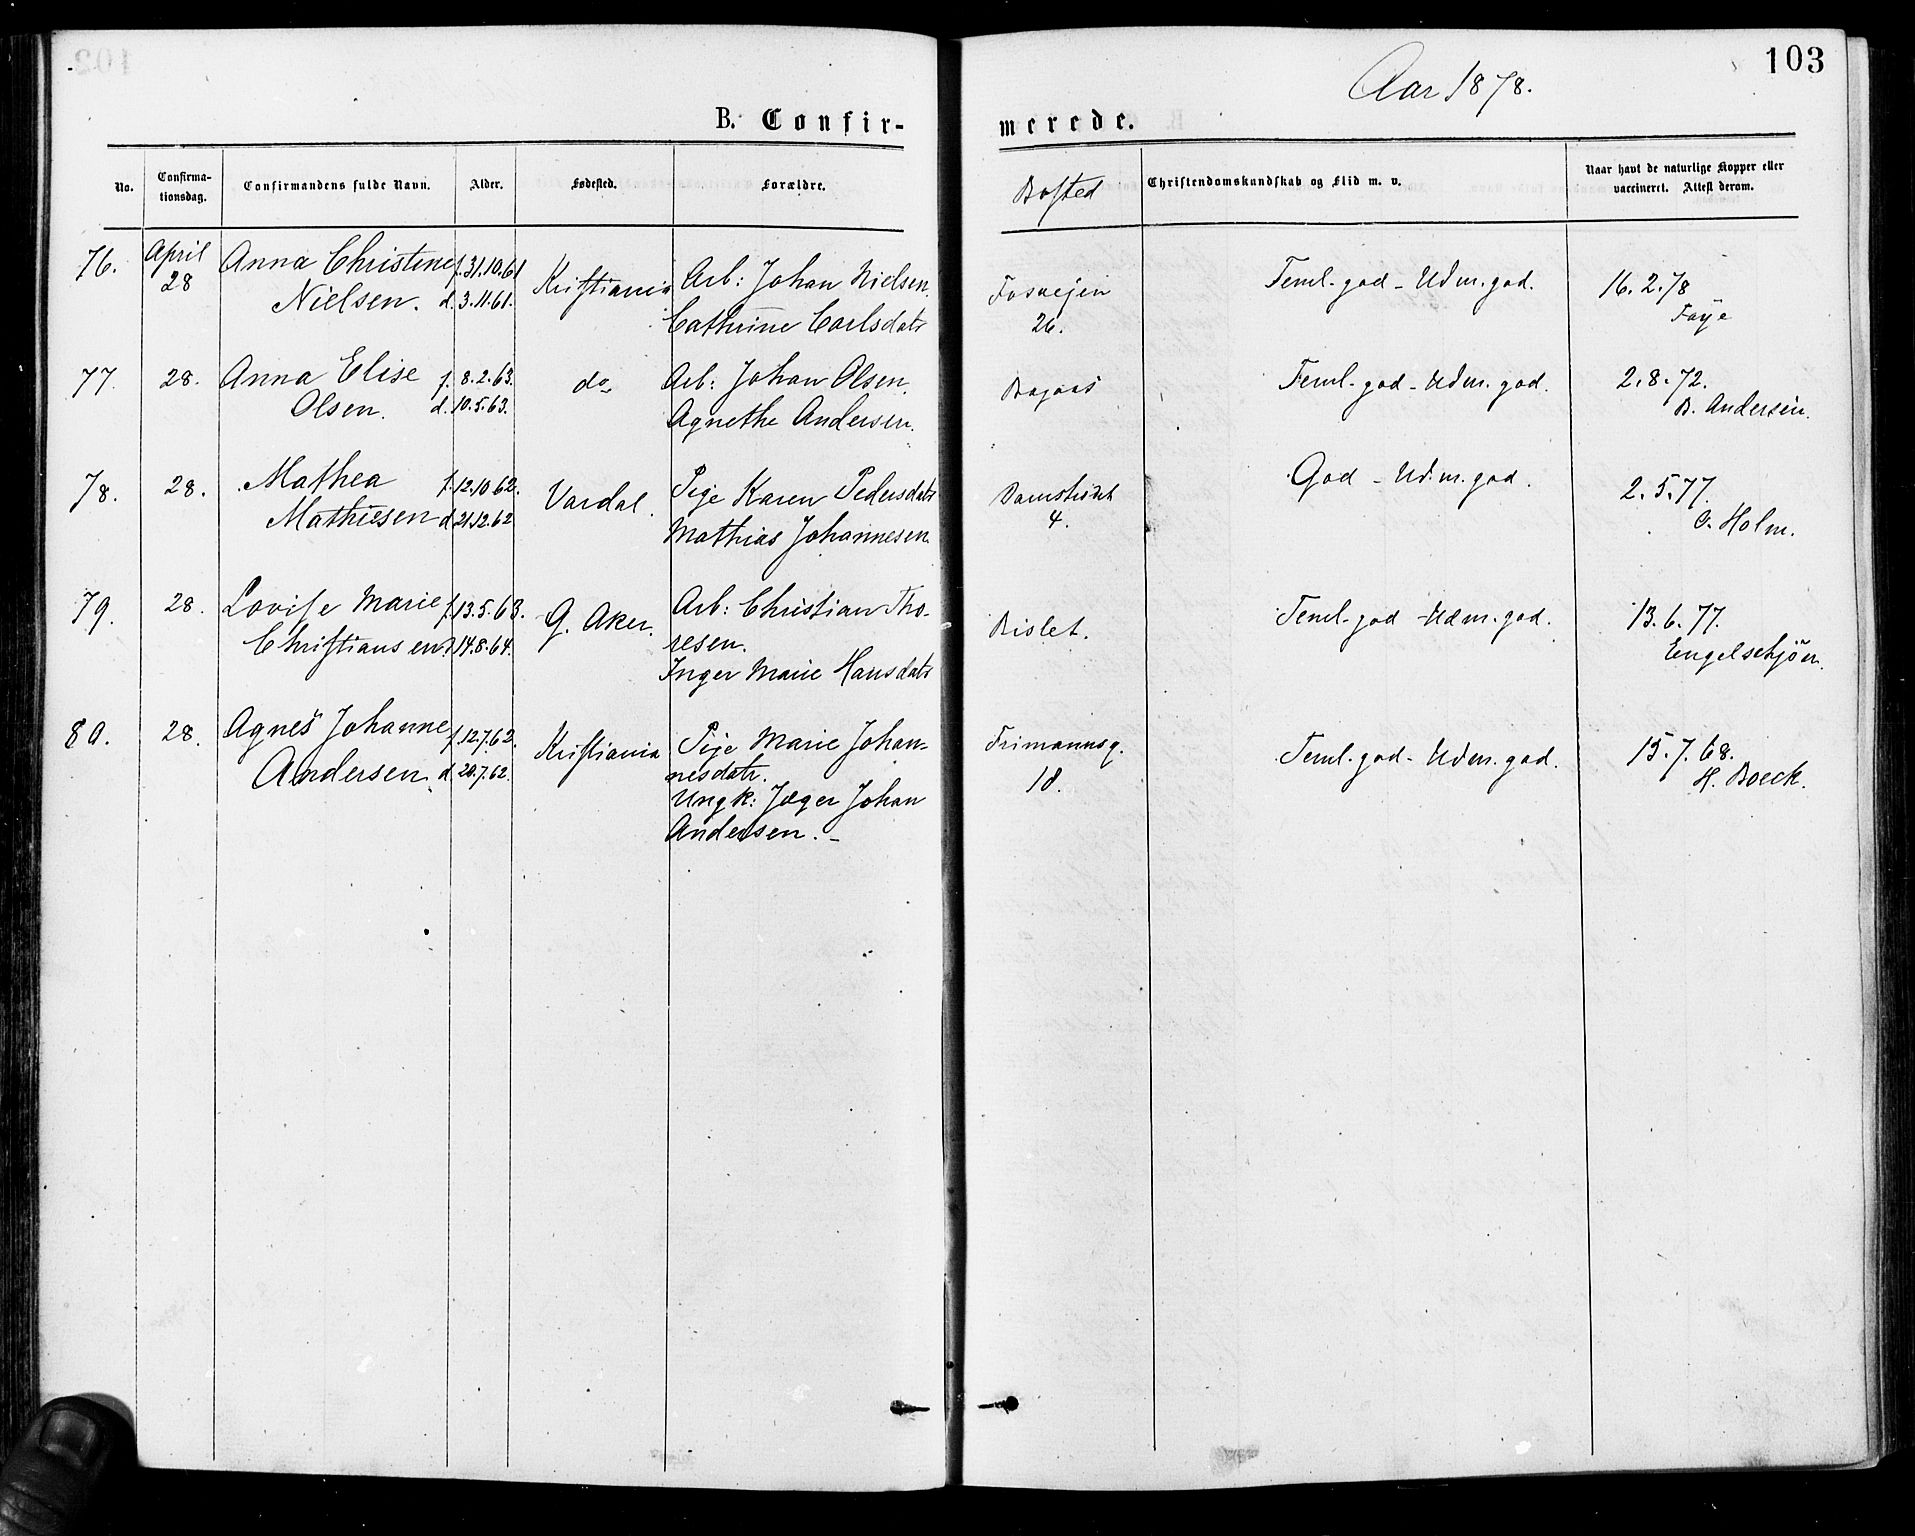 103
Aar 1878.
B. Confir-
merede.
No.
Confirma-
tionsdag.
Confirmandens fulde Navn.
Alder.
Fødested.
Forældre.
Bosted
Christendomskundskab og Flid m. v.
Naar havt de naturlige Kopper eller
vaccineret. Attest derom.
76. April 28 Anna Christine f. 31.10.61 Kristiania Arb: Johan Nielsen.
Nielsen. d. 3.11.61. Cathrine Carlsdatr
26. Teml. god - Udm. god. 16.2.78
Faye
77. 28. Anna Elise f. 8.2.63. do Arb: Johan Olsen.
Olsen. d. 10.5.63. Agnethe Andersen.
Teml. god - Udm. god. 2.8.72.
B. Andersen.
78. 28. Mathea f. 12.10.62. Vardal. Pige Karen Pedersdatr
Mathiesen d. 21.12.62 Mathias Johannesen.
Damstrædet God - Udm. god. 2.5.77.
4. O. Holm.
79. 28. Lovise Marie f. 13.5.63. G. Aker. Arb: Christian Tho-
Christiansen d. 14.8.64. resen.
Inger Marie Hansdatr
Bislet. Teml. god - Udm. god. 13.6.77.
Engelschjön.
80. 28. Agnes Johanne f. 12.7.62. Kristiania Pige Marie Johan-
Andersen. d. 20.7.62. nesdatr.
Ungk: Jæger Johan
Andersen. -
Frimannsg. Teml. god - Udm. god. 15.7.68.
18. H. Boeck.